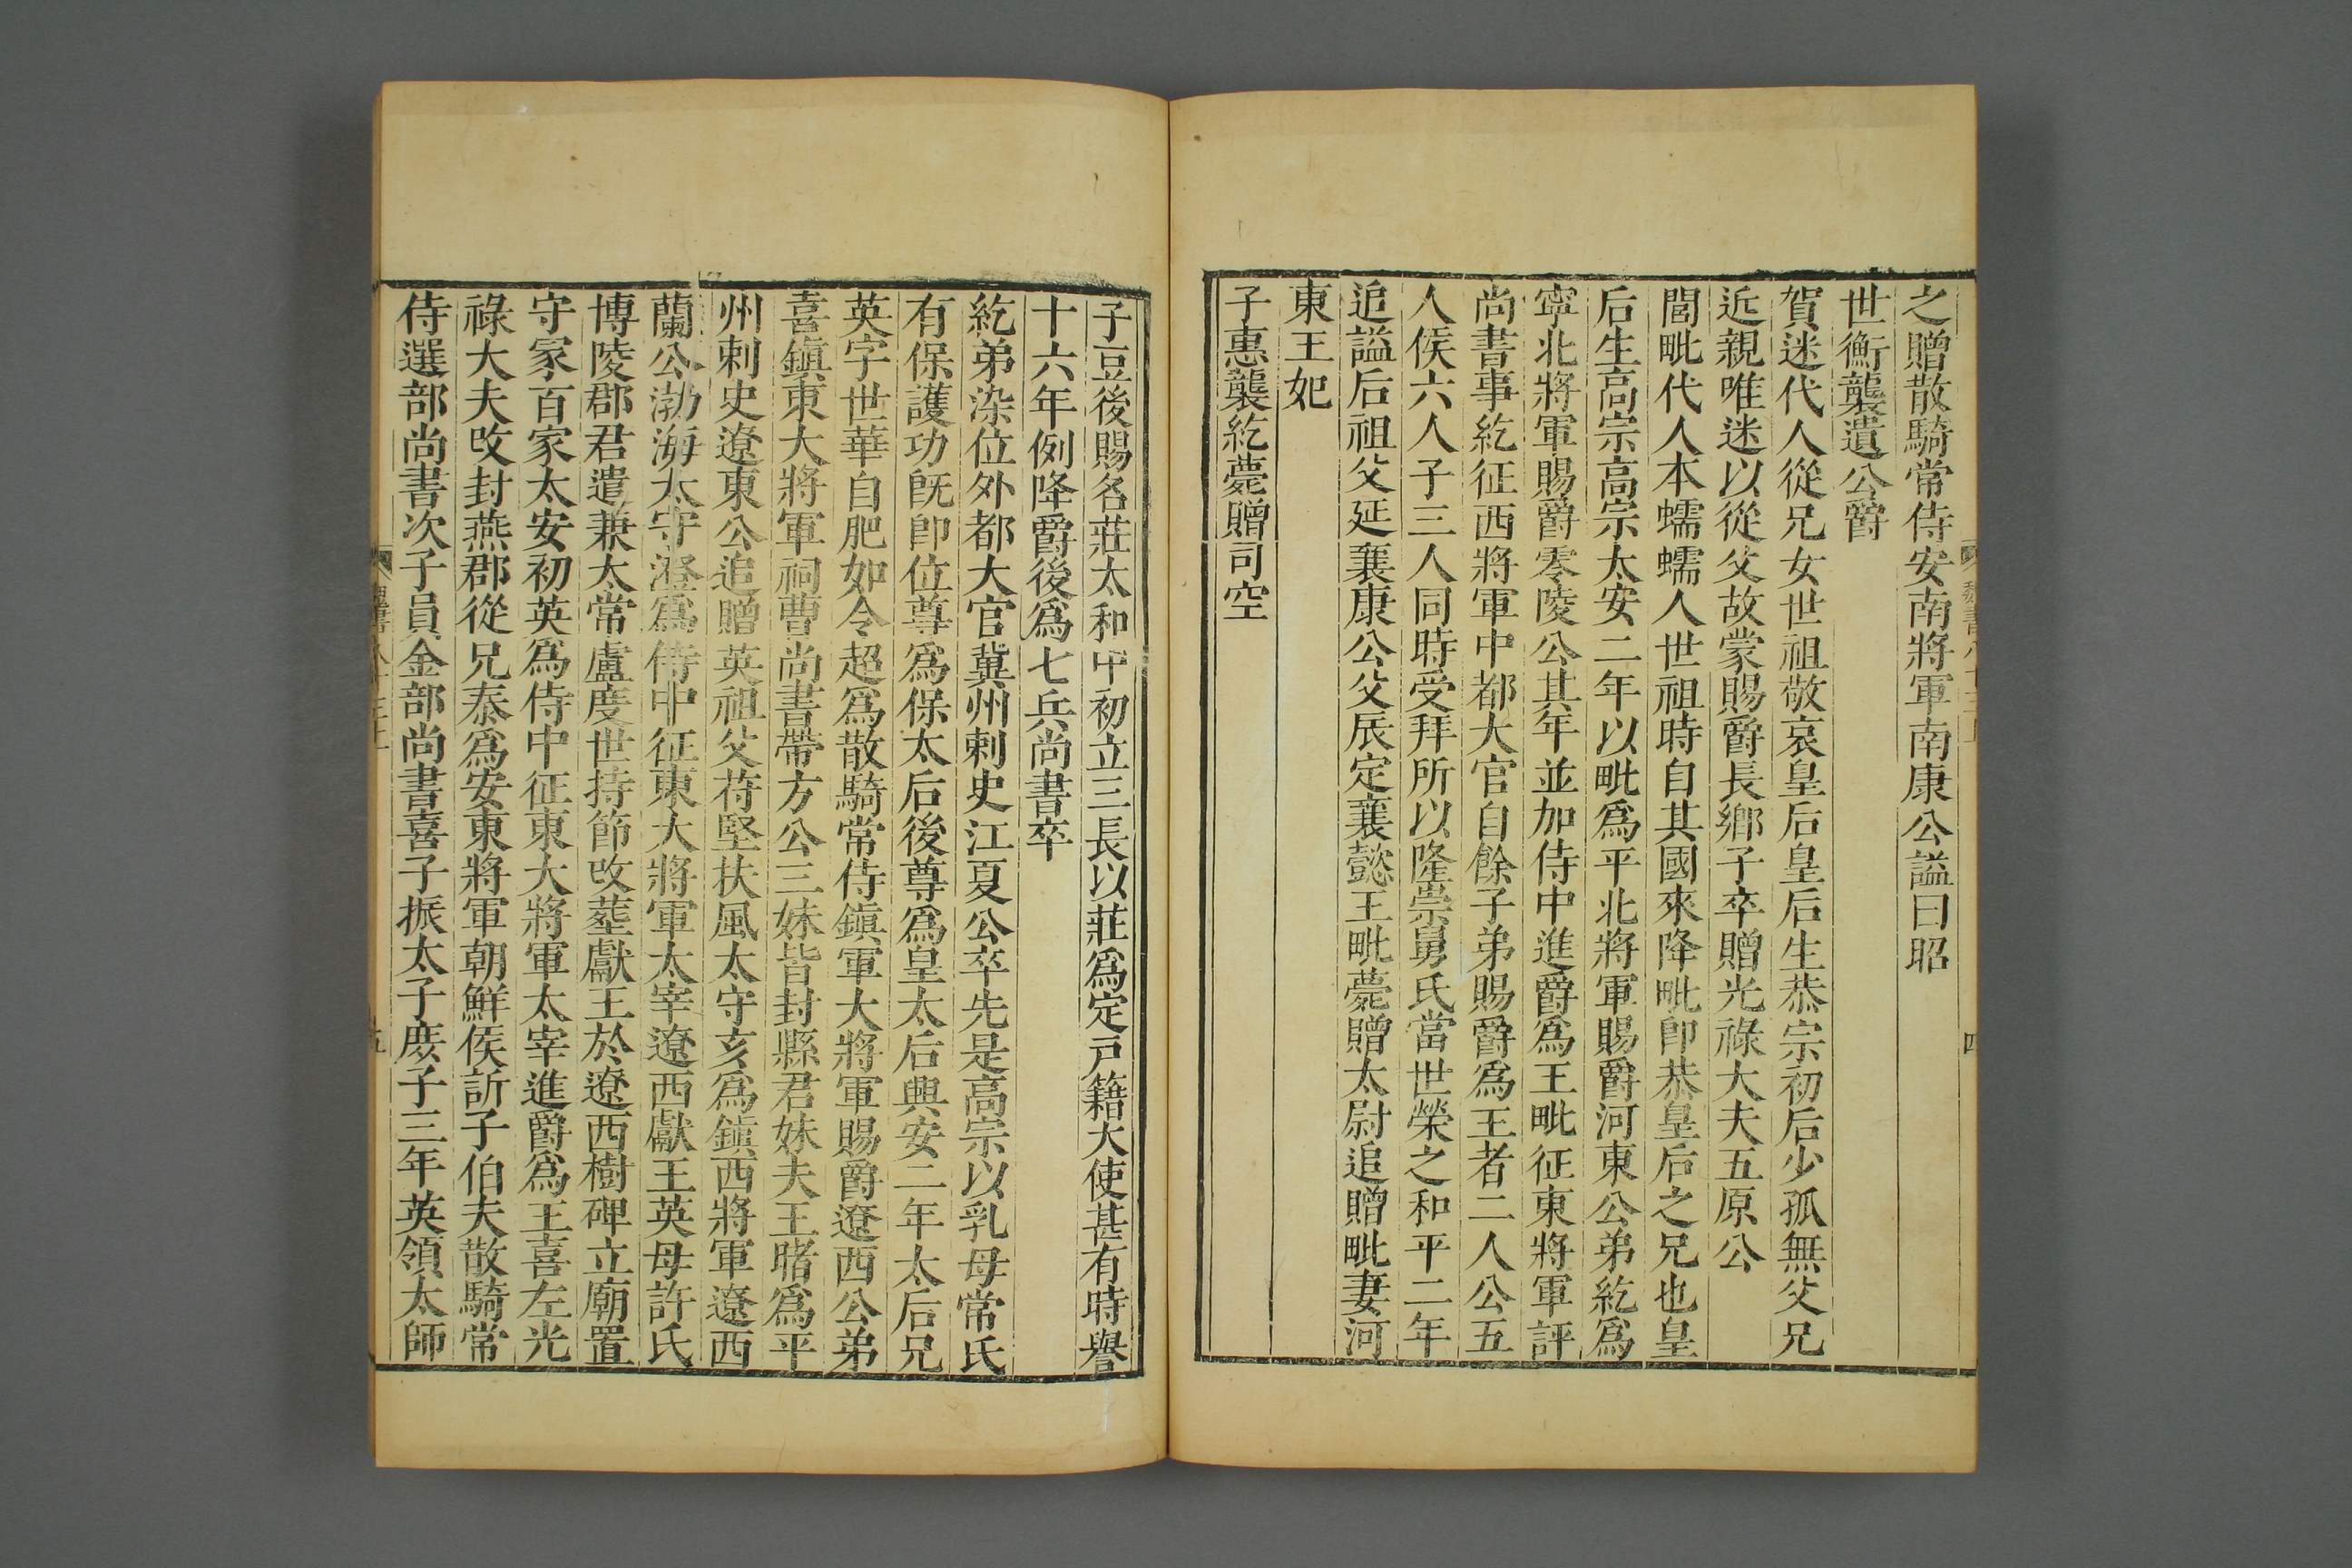 之贈散騎常侍安南將軍南康公謚曰昭
世衡襲遺公爵
賀迷代人從兄女世祖敬哀皇后皇后生恭宗初后少孤無父兄
近親唯迷以從父故蒙賜爵長鄉子卒贈光祿大夫五原公
閭毗代人本蠕蠕人世祖時自其國來降毗卽恭皇后之兄也皇
后生高宗高宗太安二年以毗爲平北將軍賜爵河東公弟紇爲
寧北將軍賜爵零陵公其年並加侍中進爵爲王毗征東將軍評
尚書事紇征西將軍中都大官自餘子弟賜爵爲王者二人公五
人侯六人子三人同時受拜所以隆崇舅氏當世榮之和平二年
追謚后祖父延襄康公父辰定襄懿王毗薨贈太尉追贈毗妻河
東王妃
子惠襲紇薨贈司空
四
子豆後賜名莊太和中初立三長以莊爲定戸籍大使甚有時譽
十六年例降爵後爲七兵尚書卒
紇弟染位外都大官冀州刺史江夏公卒先是高宗以乳母常氏
有保護功旣卽位尊爲保太后後尊爲皇太后興安二年太后兄
英字世華自肥如令超爲散騎常侍鎭軍大將軍賜爵遼西公弟
喜鎭東大將軍祠曹尚書帶方公三妹皆封縣君妹夫王睹爲平
州刺史遼東公追贈英祖父苻堅扶風太守亥爲鎭西將軍遼西
蘭公渤海太守澄爲侍中征東大將軍太宰遼西獻王英母許氏
博陵郡君遣兼太常盧度世持節改葬獻王於遼西樹碑立廟置
守冢百家太安初英爲侍中征東大將軍太宰進爵爲王喜左光
祿大夫改封燕郡從兄泰爲安東將軍朝鮮侯訢子伯夫散騎常
侍選部尚書次子員金部尚書喜子振太子庶子三年英領太師
五